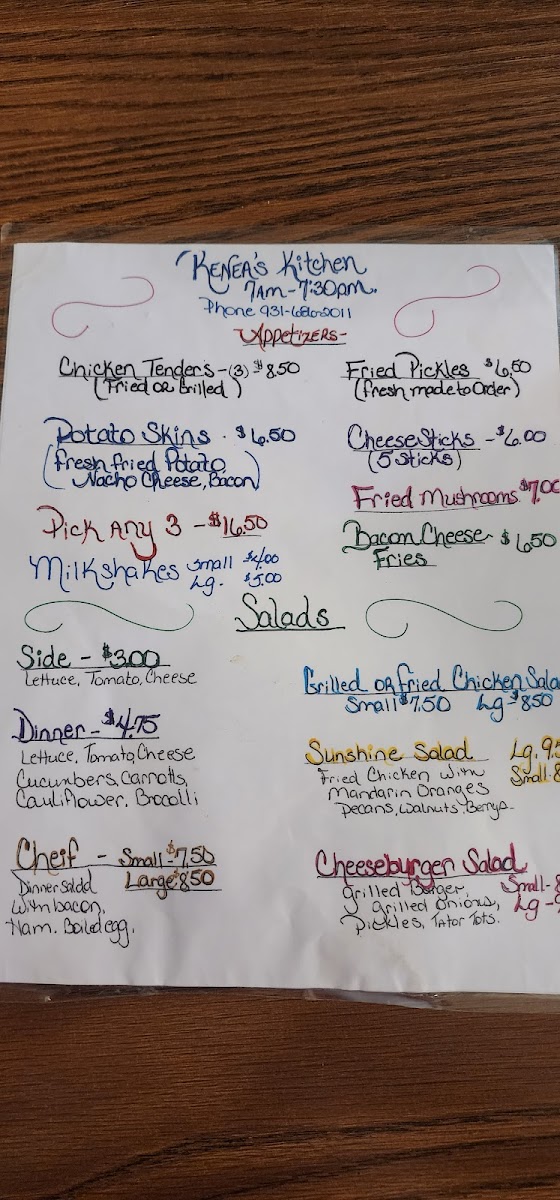 Kenea's Kitchen
7am-7:30pm.
Phone 931-686-2011
Appetizers-
Chicken Tenders-(3) $8.50
(Fried or Grilled)
Potato Skins - $6.50
(Fresh fried Potato
Nacho Cheese, Bacon)
Pick Any 3 - $16.50
Milkshakes Small $4.00
Lg. $5.00
Fried Pickles $6.50
(fresh made to Order)
Cheese Sticks - $6.00
(5 Sticks)
Fried Mushrooms $7.00
Bacon Cheese $6.50
Fries
Salads
Side - $3.00
Lettuce, Tomato, Cheese
Dinner - $4.75
Lettuce, Tomato, Cheese
Cucumbers, Carrotts,
Cauliflower, Brocolli
Cheif - Small-$7.50
Large $8.50
Dinner Salad
with bacon,
Ham. Boiled egg.
Grilled or Fried Chicken Sala
Small $7.50 Lg-$8.50
Sunshine Salad Lg. 9.5
Fried Chicken with Small-8
Mandarin Oranges
Pecans, Walnuts, Berrys-
Cheeseburger Salad
Grilled Burger, Small-8
grilled onions, Lg-9
Pickles, Tator Tots.